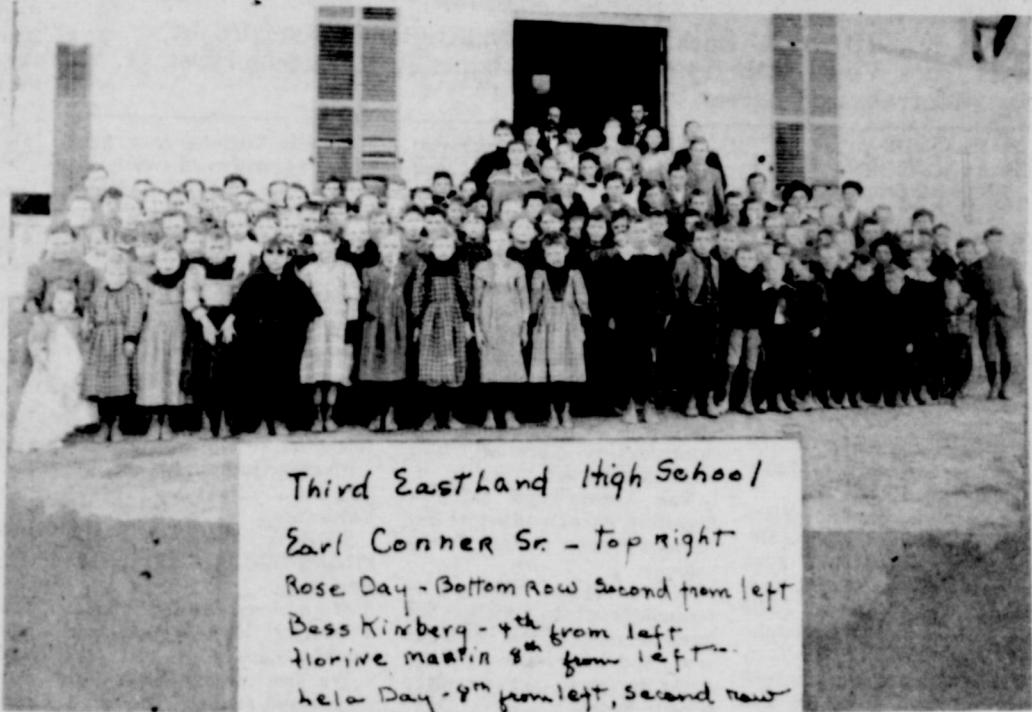 Third Eastland High School
Earl Conner Sr. - Top Right
Rose Day - Bottom Row Second from left
Bess Kinberg - 4th from left
Florine Martin 8th from left
Lela Day - 8th from left, Second row